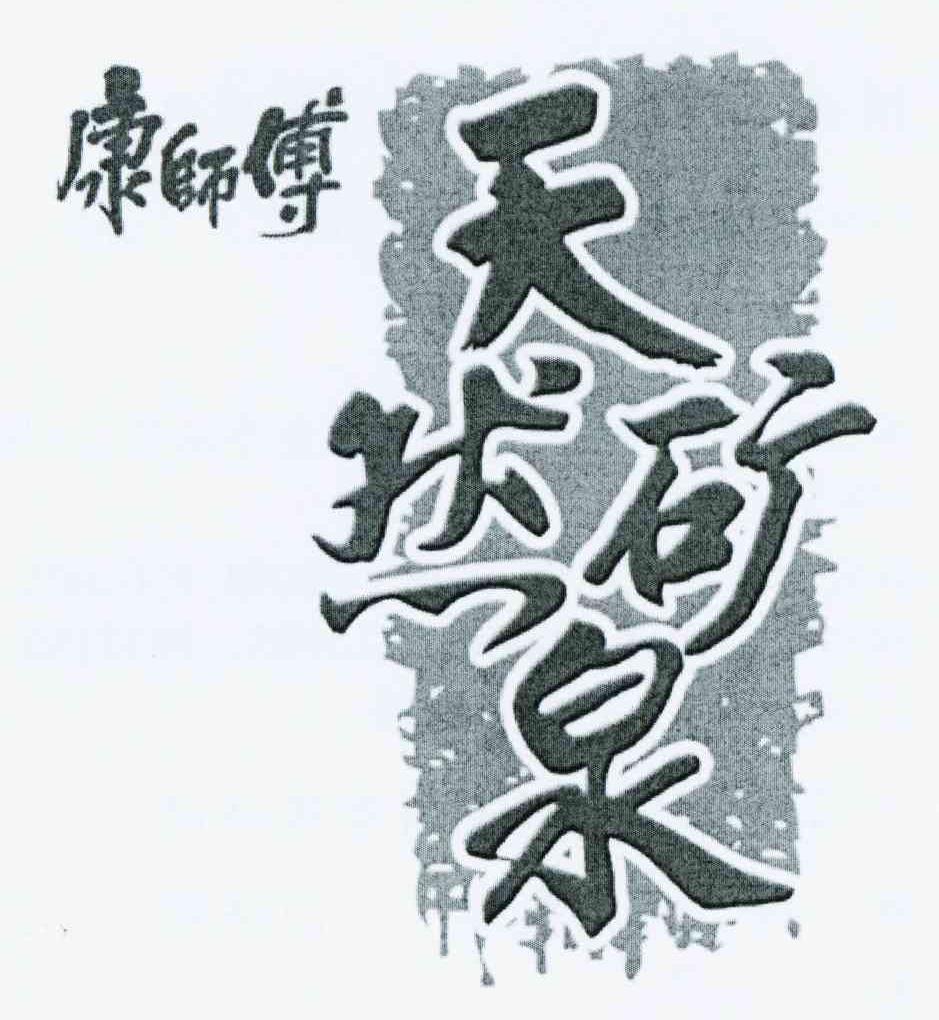 康師傅
天然矿泉